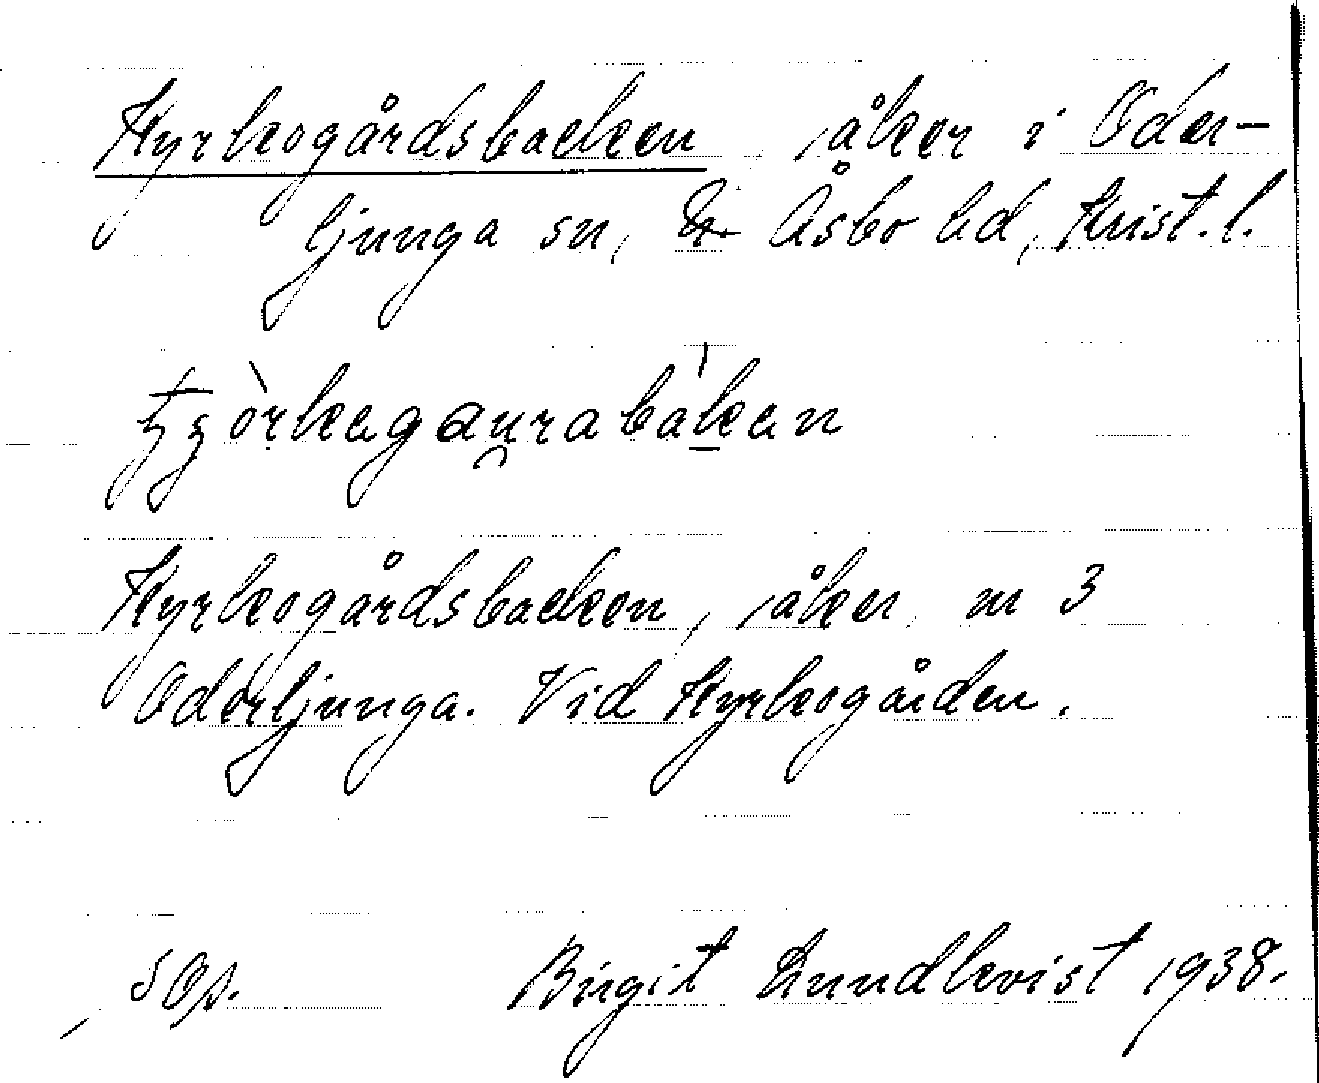 Kyrkogårdsbacken, åker i Oder-
ljunga sn, N. Åsbo hd, Krist. l.
Kyrkogårdsbacken, åker, nr 3
Oderljunga. Vid Kyrkogården.
Birgit Lundkvist 1938.